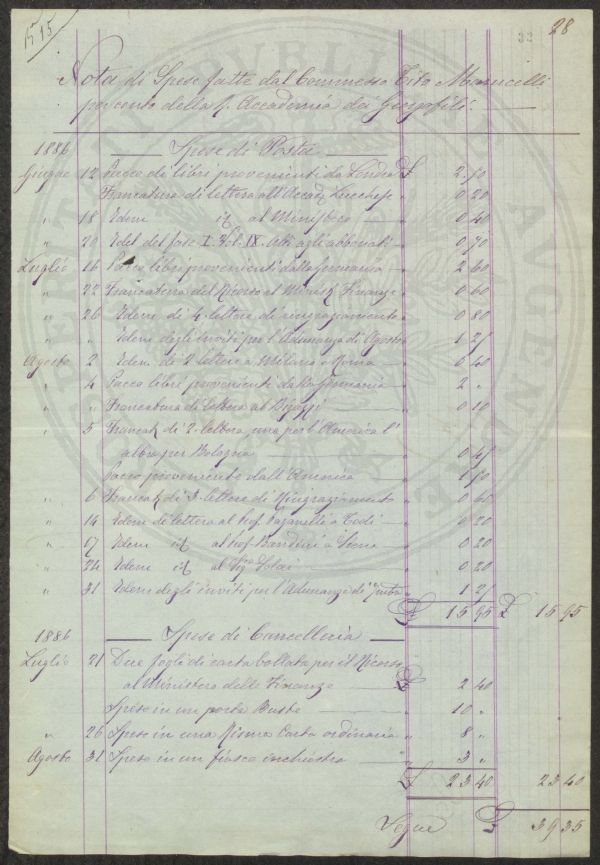 15.15
28
33
Nota di Spese fatte dal Commesso Tito Marucelli
per conto della R. Accademia dei Georgofili
1886 Spese di Posta
Giugno 12 Pacco di libri provenienti da Londra £ 2.50
Francatura di lettera all'Accad. Lucchese " 0 20
" 18 Idem id al Ministero " 0 40
" 20 del fasc. I. Vol. IX. Atti agli abbonati " 0 70
Luglio 16 Pacco libri provenienti dalla Germania " 2 60
" 22 Francatura del Ricorso al Minist. Finanze " 0 60
" 26 Idem di 4 lettere di ringraziamento " 0 80
" " Idem degli Inviti per l'Adunanza di Agosto " 1 25
Agosto 2 Idem di 2 lettere a Milano e Roma " 0 40
" 4 Pacco libri provenienti dalla Germania " 2 "
" " Francatura di lettera al " 0 10
" 5 Francat. di 2 lettere una per l'America l'
altra per Bologna " 0 45
Pacco proveniente dall'America " 1 50
" 6 Francat. di 3 lettere di Ringraziamento " 0 60
" 14 Idem di lettera al Prof. Paganelli a Todi " 0 20
" 17 Idem id al Prof. Bandini a Siena " 0 20
" 24 Idem id al 0 20
" 31 Idem degli inviti per l'Adunanza di 1 25
£ 15 95 £ 15 95
1886 Spese di Cancelleria
Luglio 21 Due fogli di carta bollata per il Ricorso
al Ministero delle Finanze £ 2 40
Spese in un porta Buste " 10 "
" 26 Spese in una Risma Carta ordinaria " 8 "
Agosto 31 Spese in un fiasco inchiostro " 3 "
£ 23 40 23 40
Segue £ 39 35